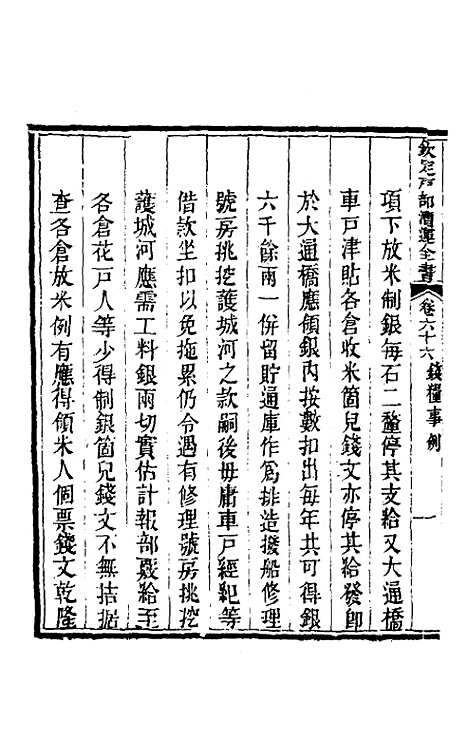 欽定戶部漕運全書 卷六十六 錢糧事例 一
項下放米制銀每石二釐停其支給又大通橋
車戶津貼各倉收米箇兒錢文亦停其給發卽
於大通橋應領銀內按數扣出每年共可得銀
六千餘兩一倂留貯通庫作爲排造撥船修理
號房挑挖護城河之款嗣後毋庸車戶經紀等
借款坐扣以免拖累仍令遇有修理號房挑挖
護城河應需工料銀兩切實估計報部覈給至
各倉花戶人等少得制銀箇兒錢文不無拮据
查各倉放米例有應得領米人個票錢文乾隆